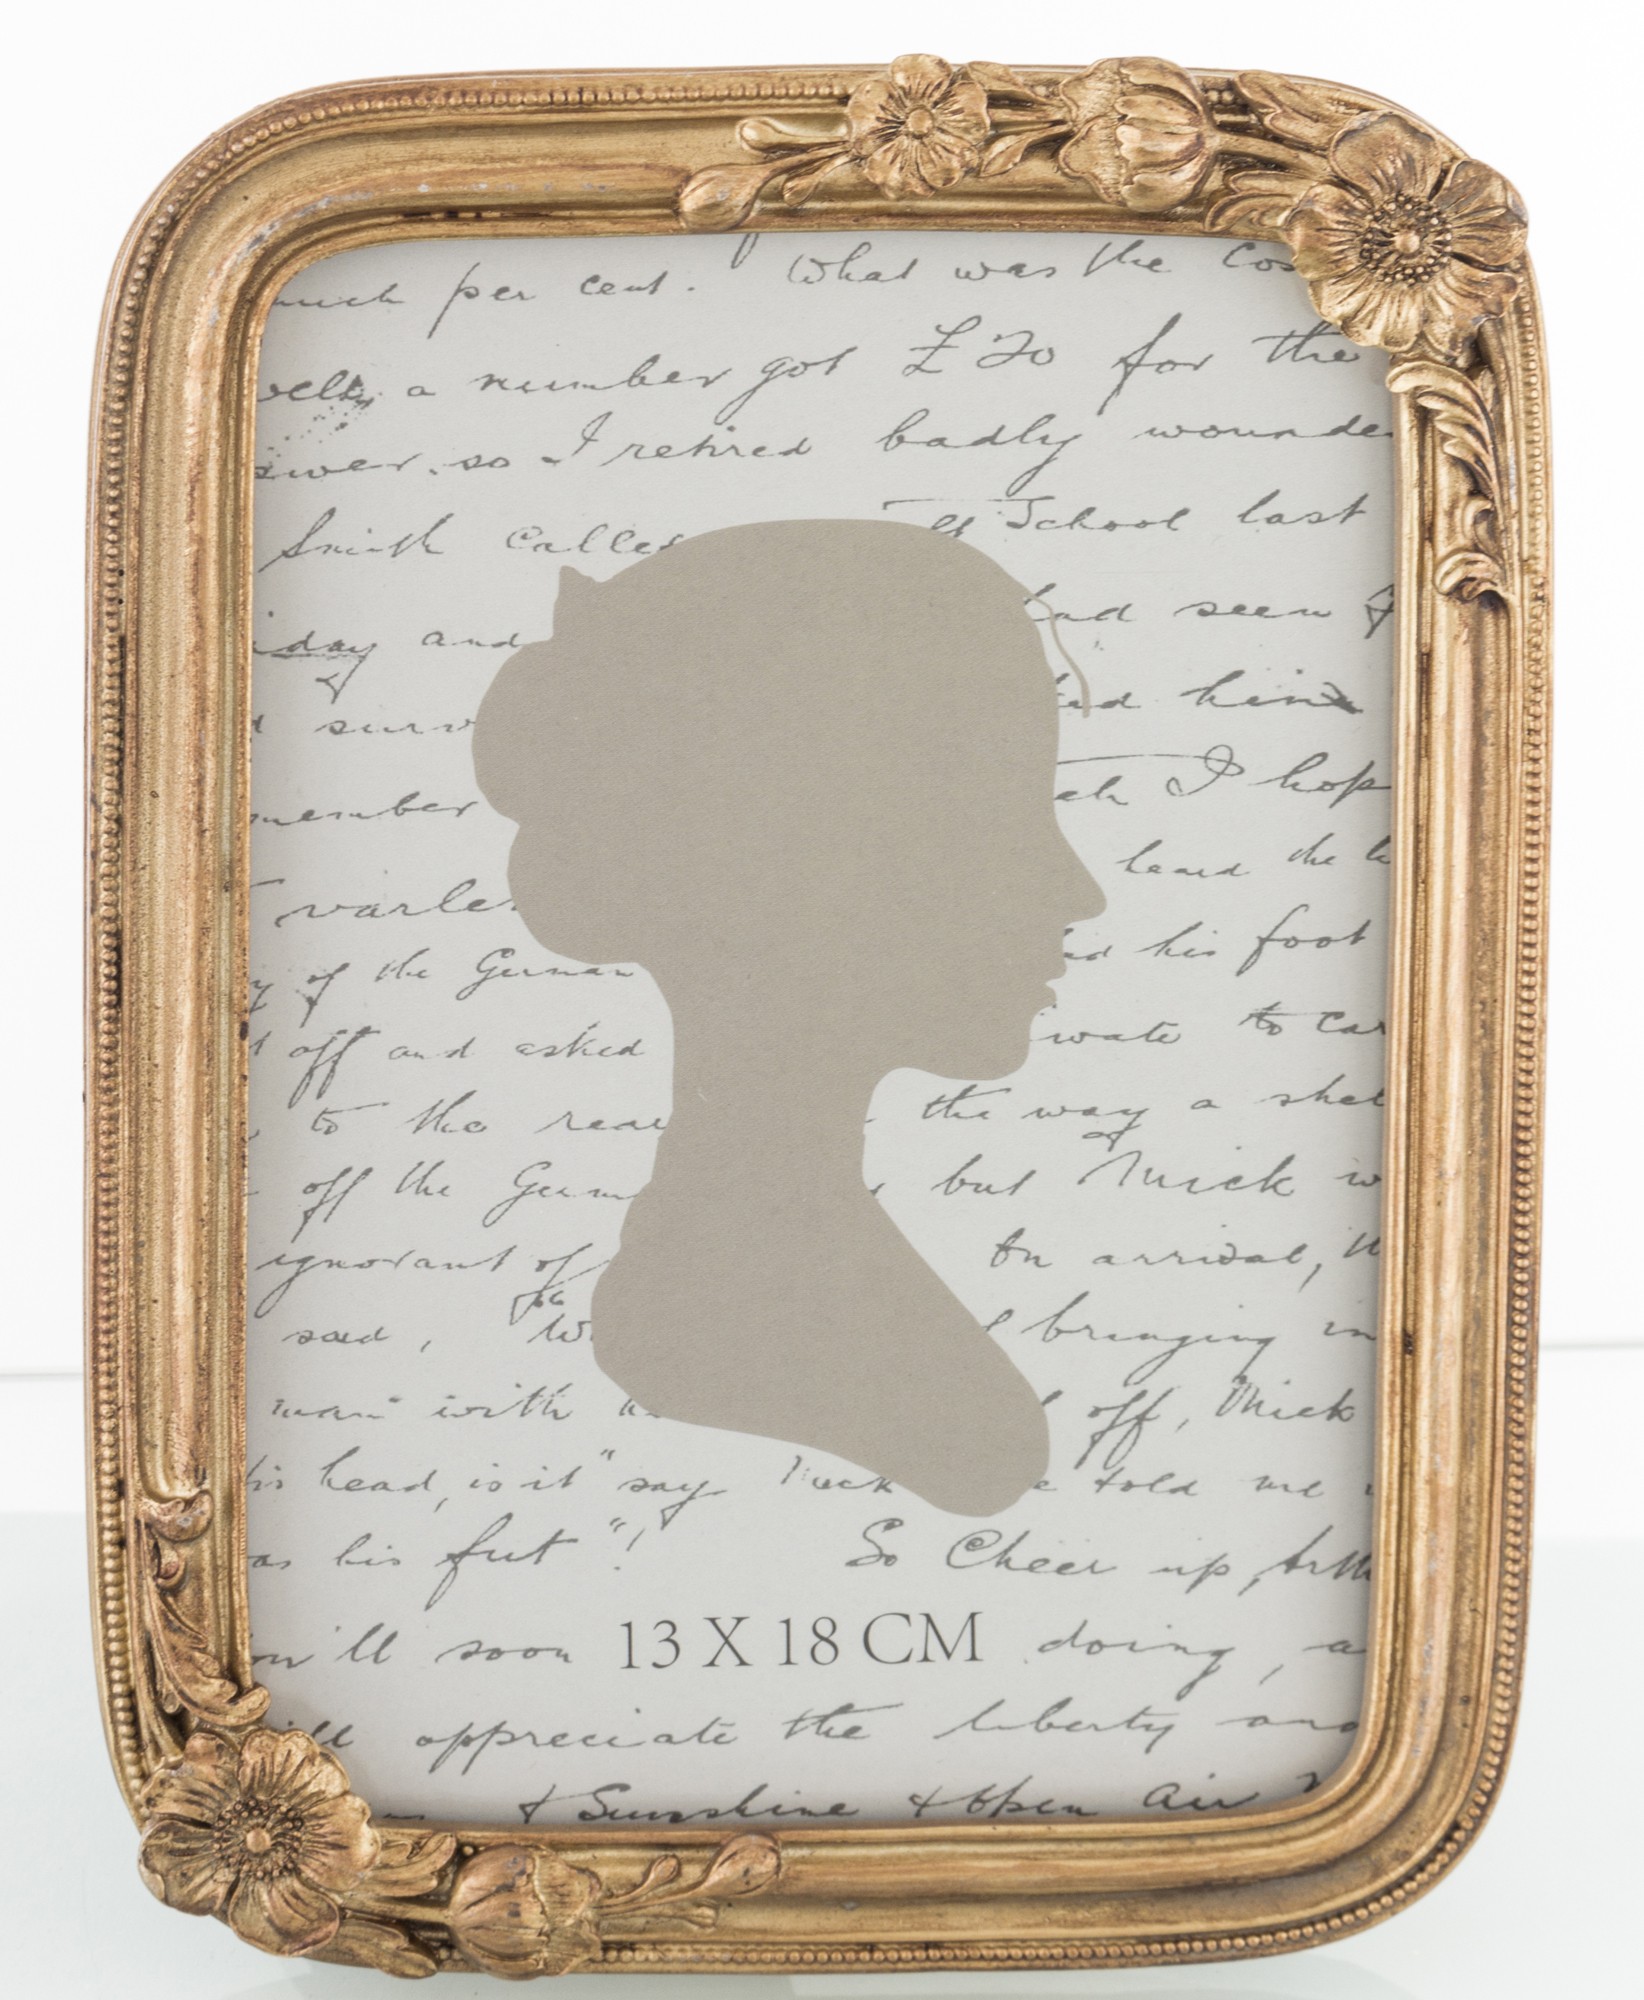 much per cent. What was the Cos
well, a number got £20 for the
swer, so I retired badly wounde
Smith Called School last
iday and had seen
surv hind
member ch I hop
varle heard the
y of the German his foot
off and asked ivate to car
to the rear the way a shel
off the Germ but Mick w
ignorant of On arrival,
said, bringing in
man with off, Mick
his head, is it" say told me
as his feet"! So Cheer up, Arth
'll soon 13 X 18 CM doing, a
ill appreciate the liberty and
& Sunshine & open Air